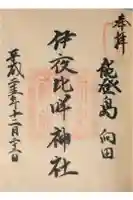 奉拝
能登島 向田
伊夜比咩神社
平成二十五年十二月二十八日